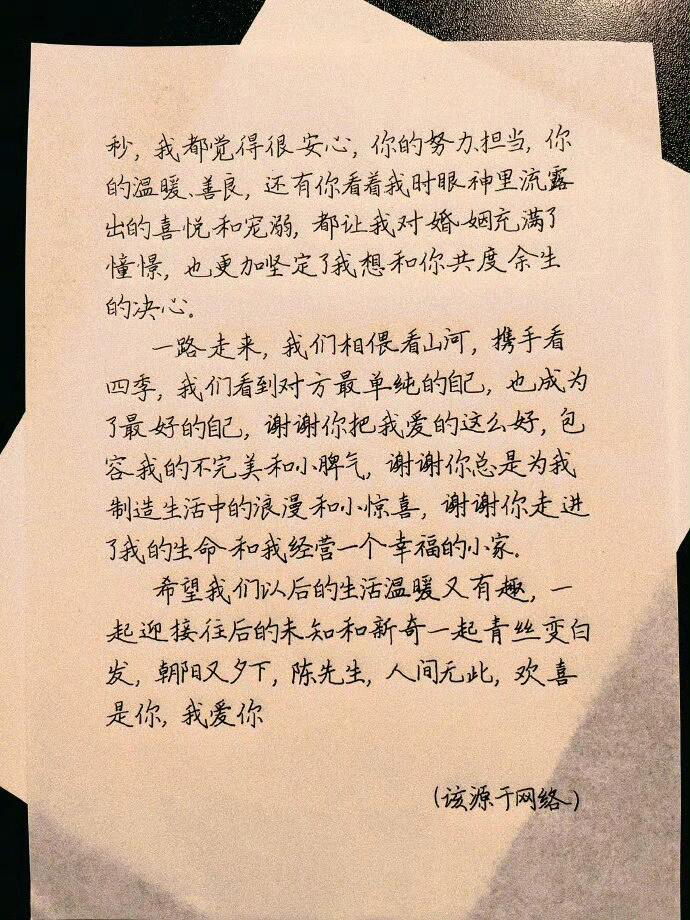 秒，我都觉得很安心，你的努力、担当，你
的温暖、善良，还有你看着我时眼神里流露
出的喜悦和宠溺，都让我对婚姻充满了
憧憬，也更加坚定了我想和你共度余生
的决心。
一路走来，我们相偎看山河，携手看
四季，我们看到对方最单纯的自己，也成为
了最好的自己，谢谢你把我爱的这么好，包
容我的不完美和小脾气，谢谢你总是为我
制造生活中的浪漫和小惊喜，谢谢你走进
了我的生命和我经营一个幸福的小家。
希望我们以后的生活温暖又有趣，一
起迎接往后的未知和新奇一起青丝变白
发，朝阳又夕下，陈先生，人间无此，欢喜
是你，我爱你
（该源于网络）